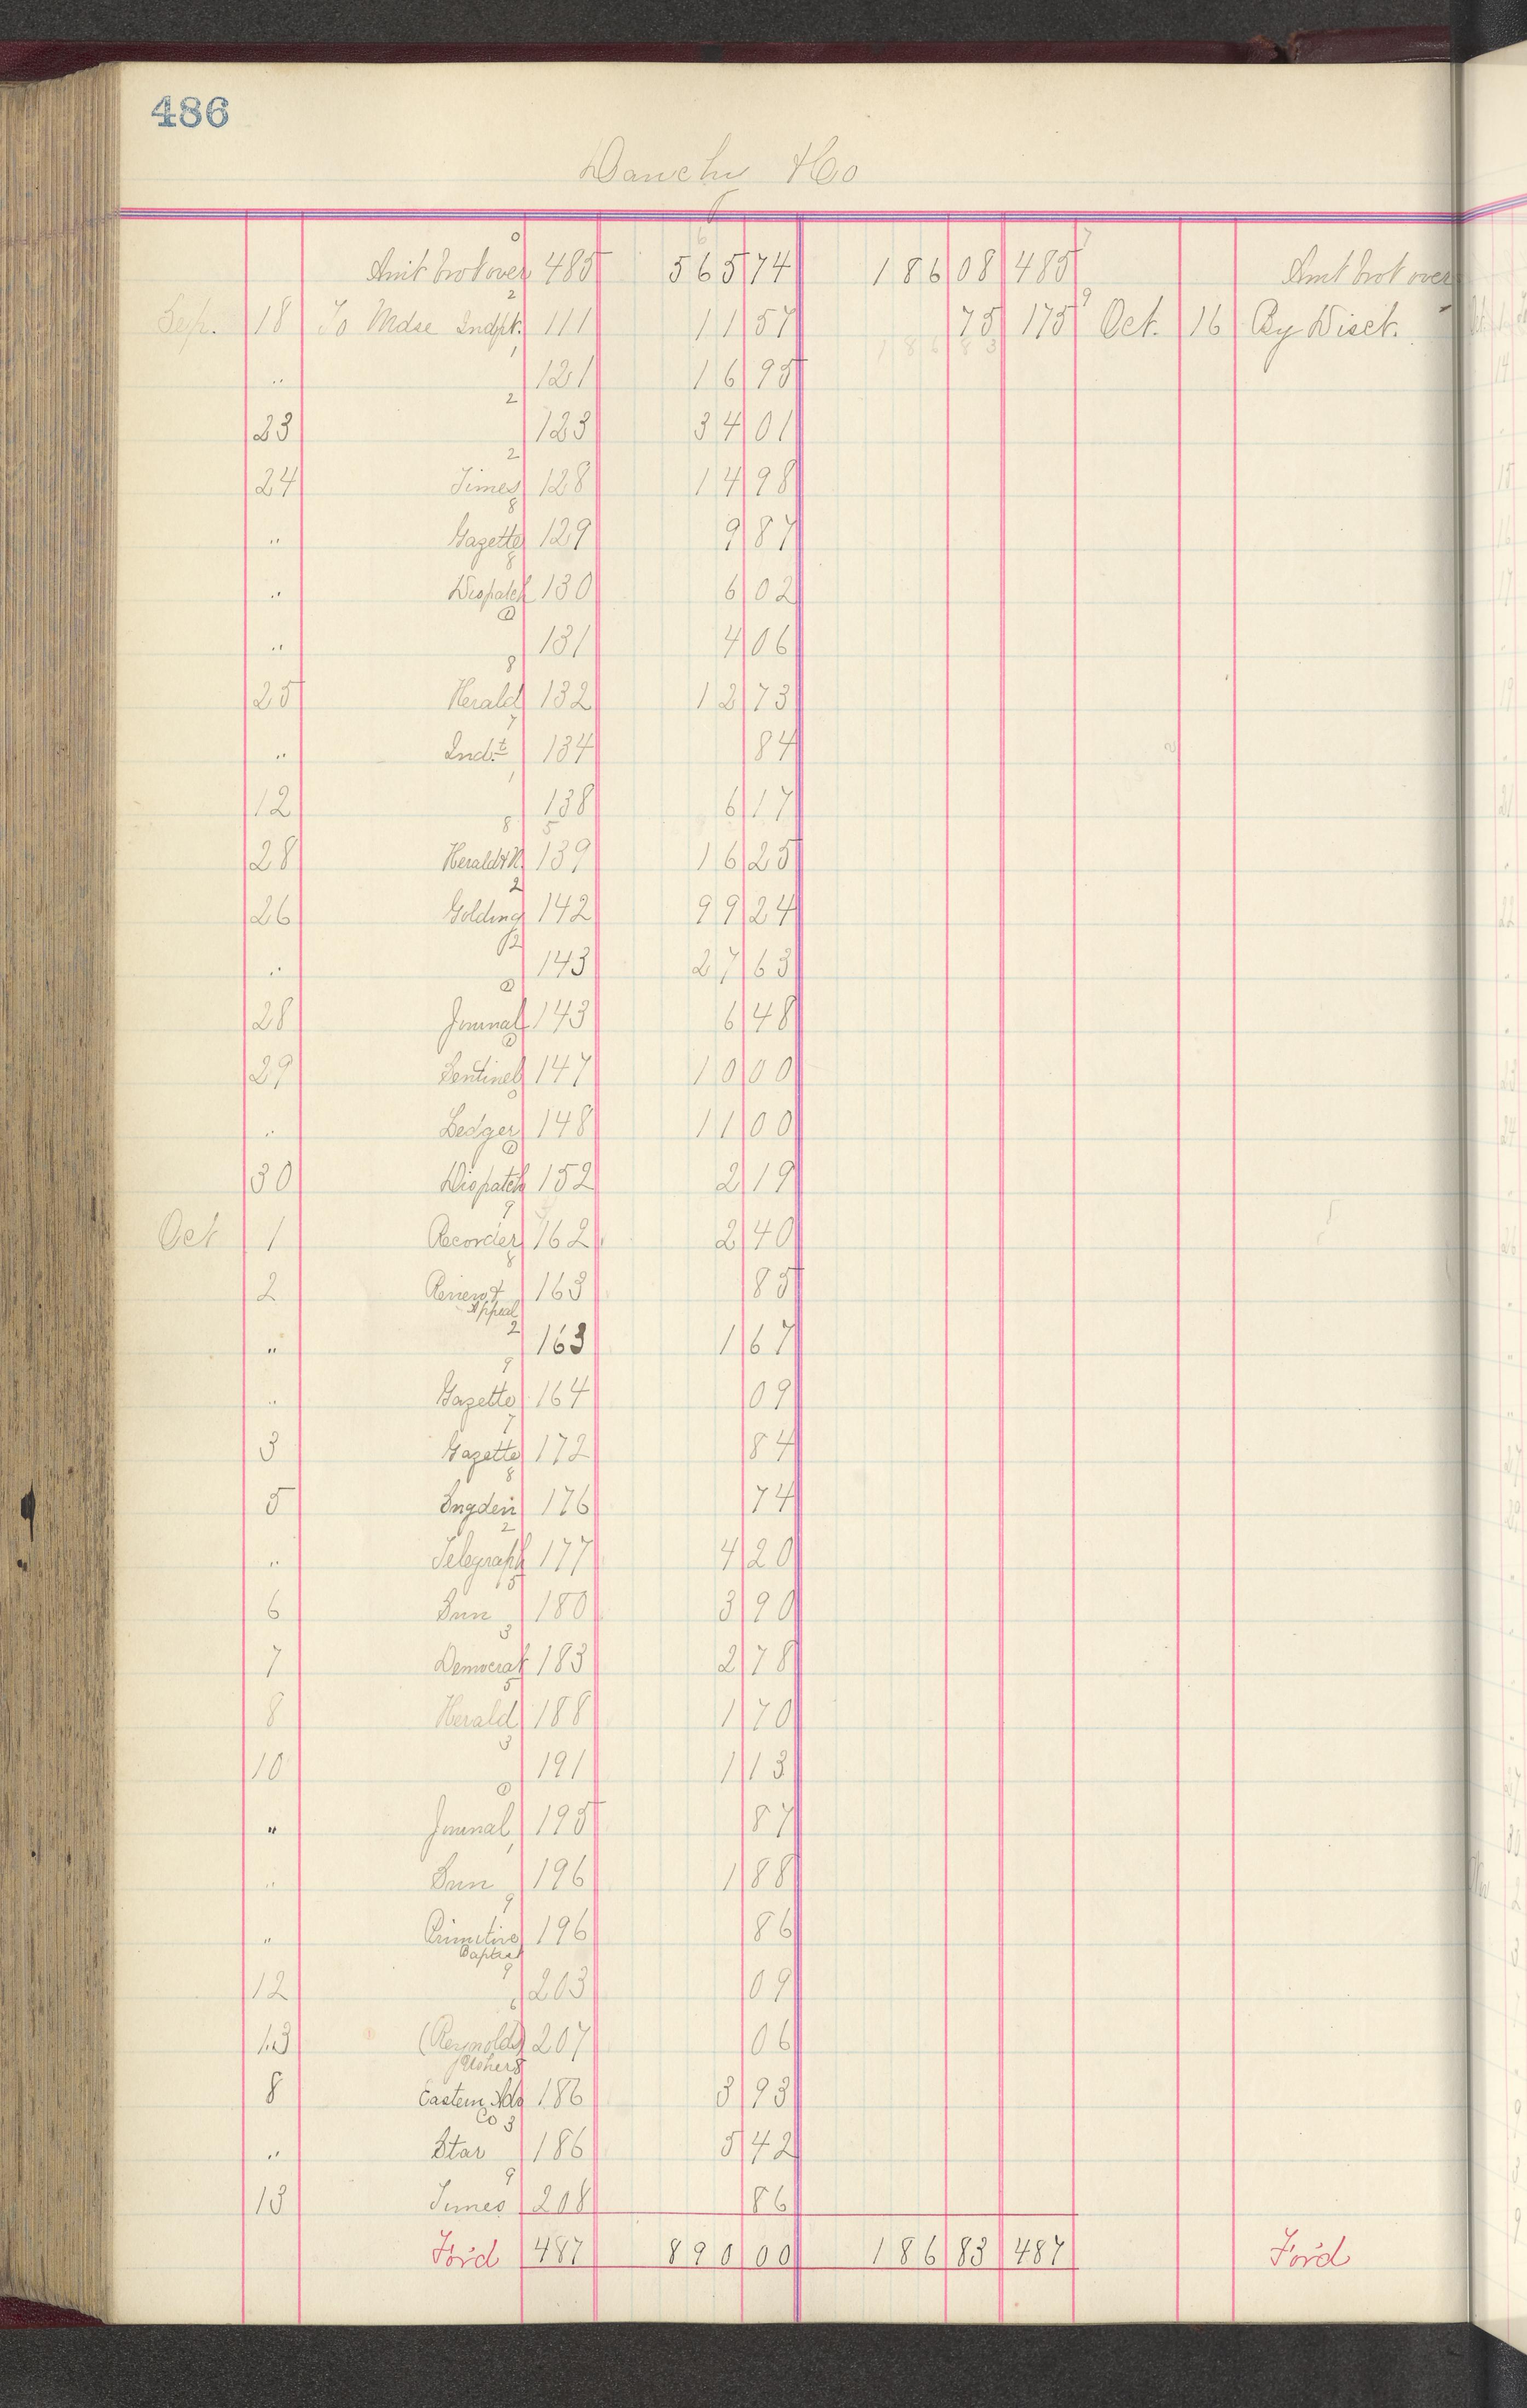 486
Danchy & Co
Amt brot over 485 565 74 186 08 485 Amt brot over
Sep. 18 To Mdse Indpt. 111 11 57 75 175 Oct. 16 By Disct.
" 121 16 95
23 123 34 01
24 Times 128 14 98
" Gazette 129 9 87
" Dispatch 130 6 02
" 131 4 06
25 Herald 132 12 73
" Indt 134 84
12 138 6 17
28 Herald & N 139 16 25
26 Golding 142 99 24
" 143 27 63
28 Journal 143 6 48
29 Sentinel 147 10 00
" Ledger 148 11 00
30 Dispatch 152 2 19
Oct 1 Recorder 162 2 40
2 Review & 163 85
Appeal
" 163 1 67
" Gazette 164 09
3 Gazette 172 84
5 Sugden 176 74
" Telegraph 177 4 20
6 Sun 180 3 90
7 Democrat 183 2 78
8 Herald 188 1 70
10 191 1 13
" Journal 195 87
" Sun 196 1 88
" Primitive 196 86
Baptist
12 203 09
13 (Reynolds) 207 06
8 Eastern Adv 186 3 93
Co
" Star 186 5 42
13 Times 208 86
For'd 487 890 00 186 83 487 For'd